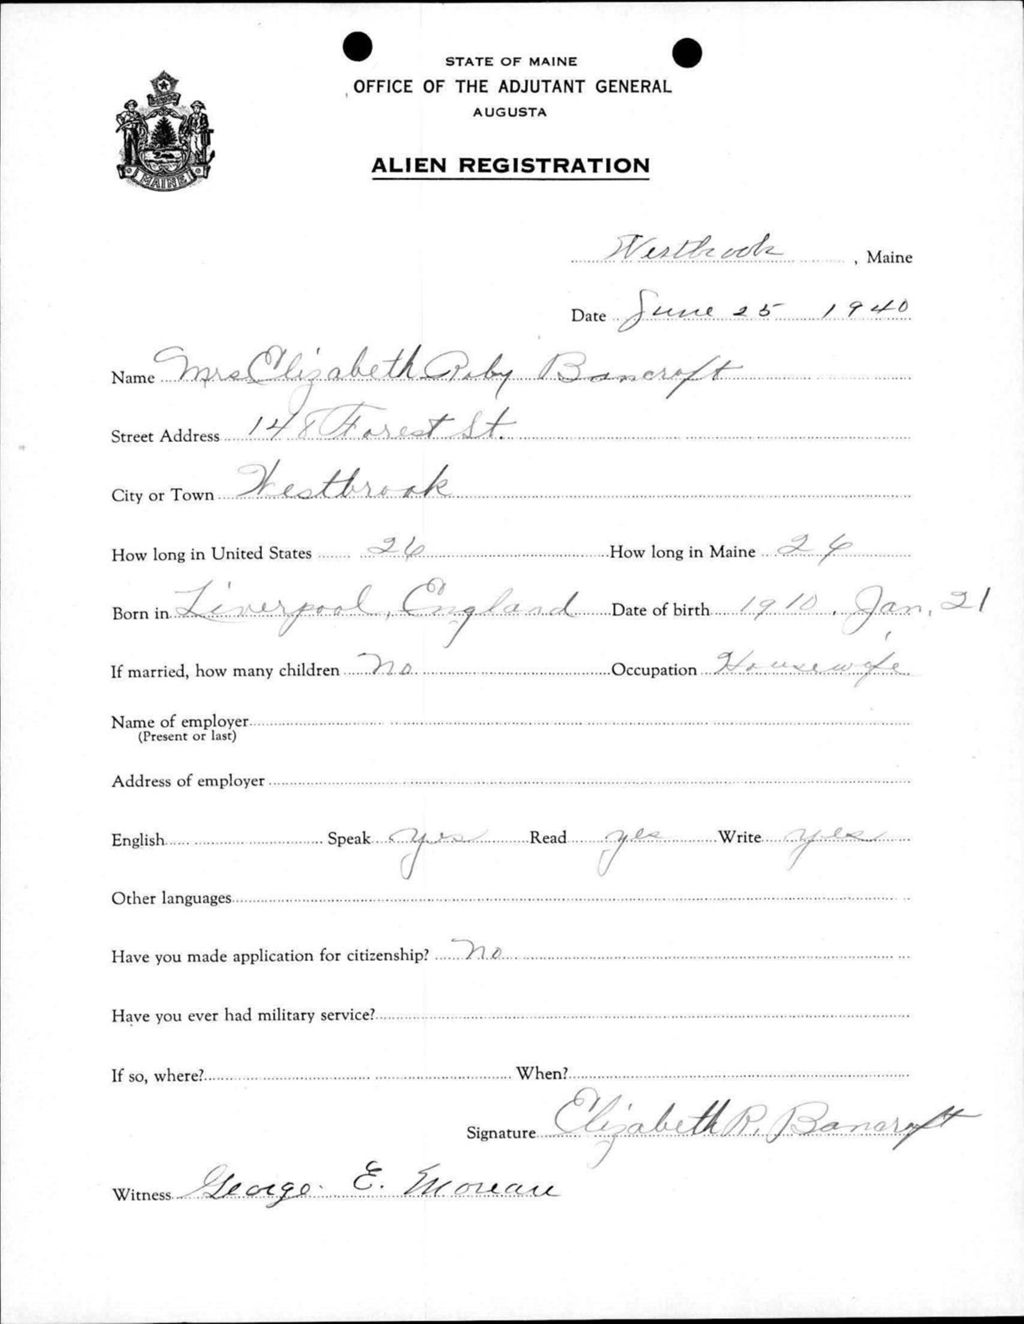 STATE OF MAINE
OFFICE OF THE ADJUTANT GENERAL
AUGUSTA
MAINE
ALIEN REGISTRATION
Westbrook, Maine
Date June 25 1940
Name Mrs Elizabeth Roby Bancroft
Street Address 148 Forest St.
City or Town Westbrook
How long in United States 26 How long in Maine 26
Born in Liverpool, England Date of birth 1910, Jan, 21
If married, how many children No Occupation Housewife
Name of employer
(Present or last)
Address of employer
English Speak yes Read yes Write yes
Other languages
Have you made application for citizenship? No
Have you ever had military service?
If so, where? When?
Signature Elizabeth R. Bancroft
Witness George E. Moreau